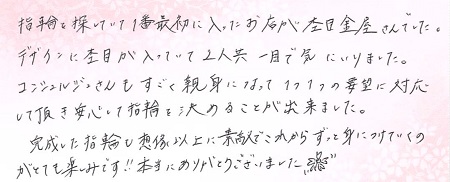 指輪を探していて1番最初に入ったお店が杢目金屋さんでした。
デザインに杢目が入っていて2人共一目で気にいりました。
コンシェルジュさんもすごく親身になって1つ1つの要望に対応
して頂き安心して指輪を決めることが出来ました。
完成した指輪も想像以上に素敵でこれからずっと身につけていくの
がとても楽しみです!!本当にありがとうございました